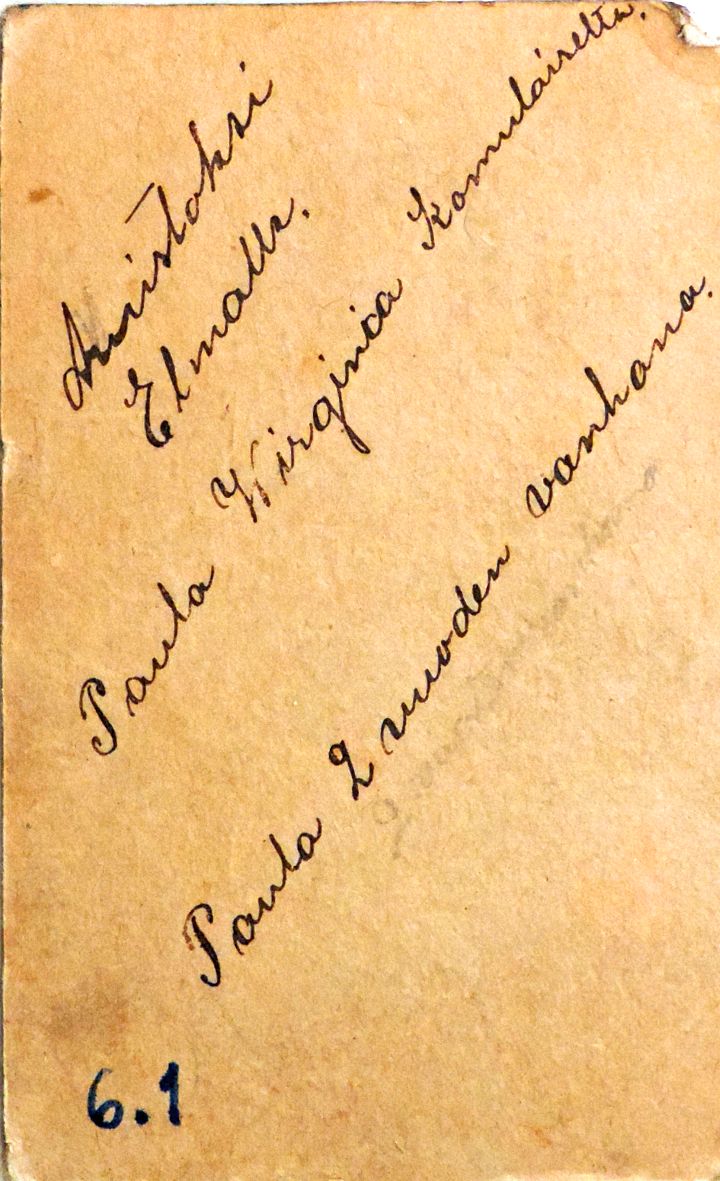 Muistoksi
Elmalle.
Paula Wirginia Komulaiselta.
Paula 2 vuoden vanhana.
6.1